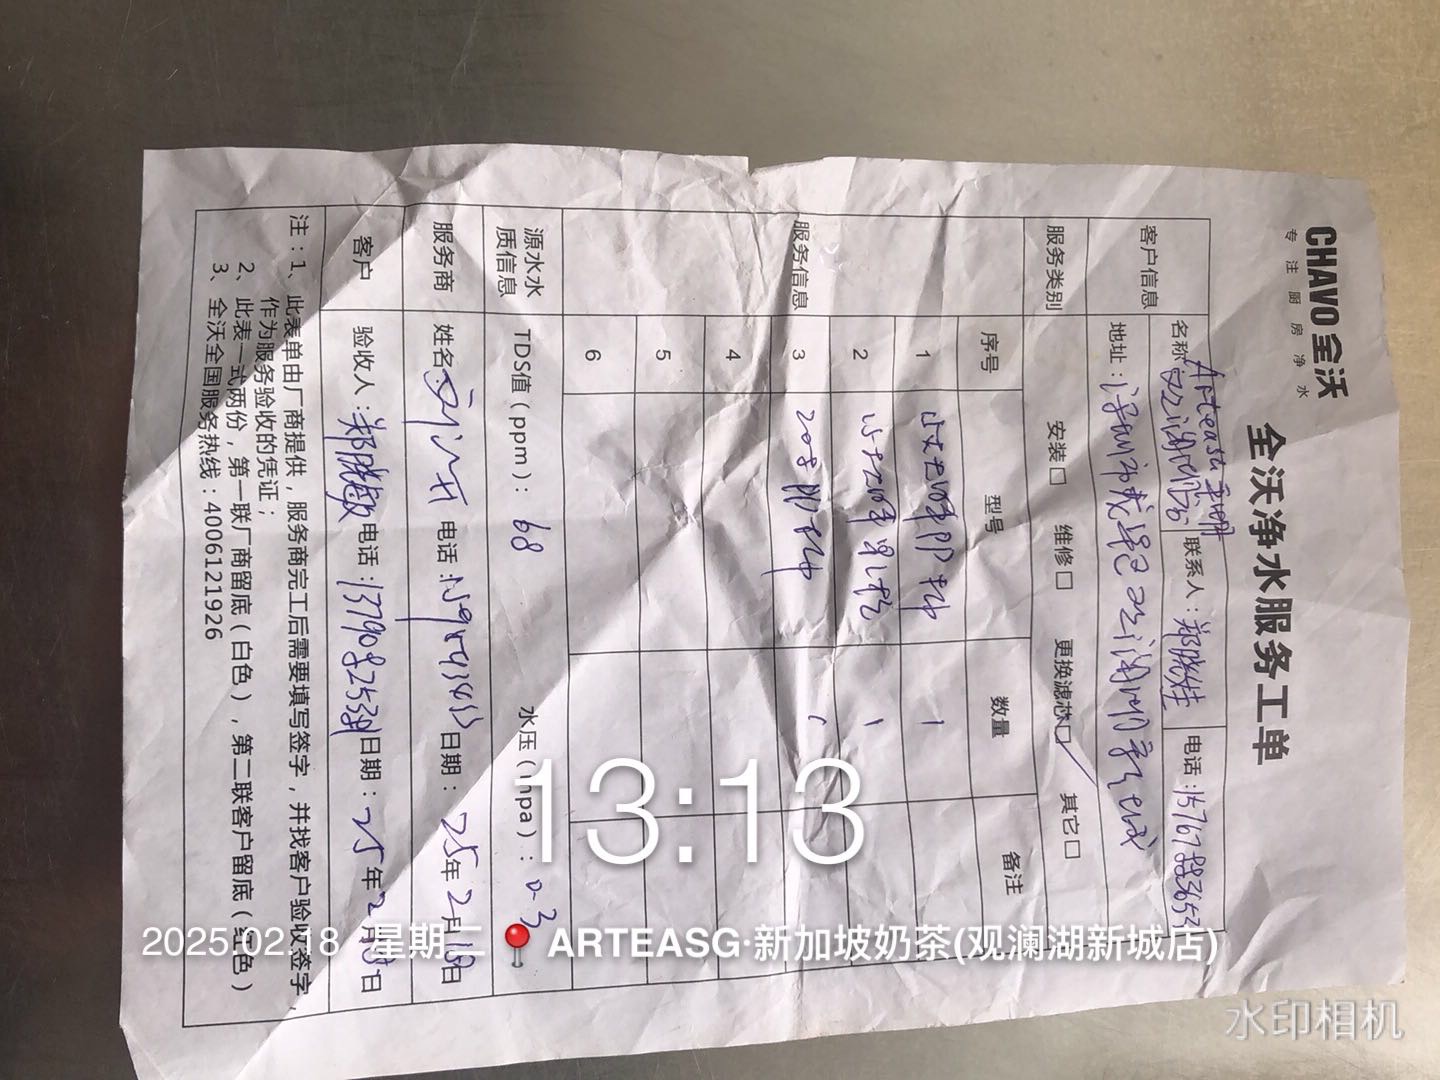 CHAVO 全沃
专注厨房净水
全沃净水服务工单
客户信息
名称
Arteasg
联系人：郑晓佳
电话：
地址：深圳市 观澜湖新城
服务类别
安装□ 维修□ 更换滤芯□ 其它□
服务信息
序号 型号 数量 备注
1 1
2 1
3 1
4
5
6
源水水质信息
TDS值（ppm）：68
水压（mpa）：0.3
服务商
姓名
电话：
日期：25年2月18日
客户
验收人：郑晓敏
电话：
日期：25年2月18日
注：1、此表单由厂商提供，服务商完工后需要填写签字，并找客户验收签字，
作为服务验收的凭证；
2、此表一式两份，第一联厂商留底（白色），第二联客户留底（红色）
3、全沃全国服务热线：4006121926
13:13
2025.02.18 星期二 ARTEASG·新加坡奶茶(观澜湖新城店)
水印相机